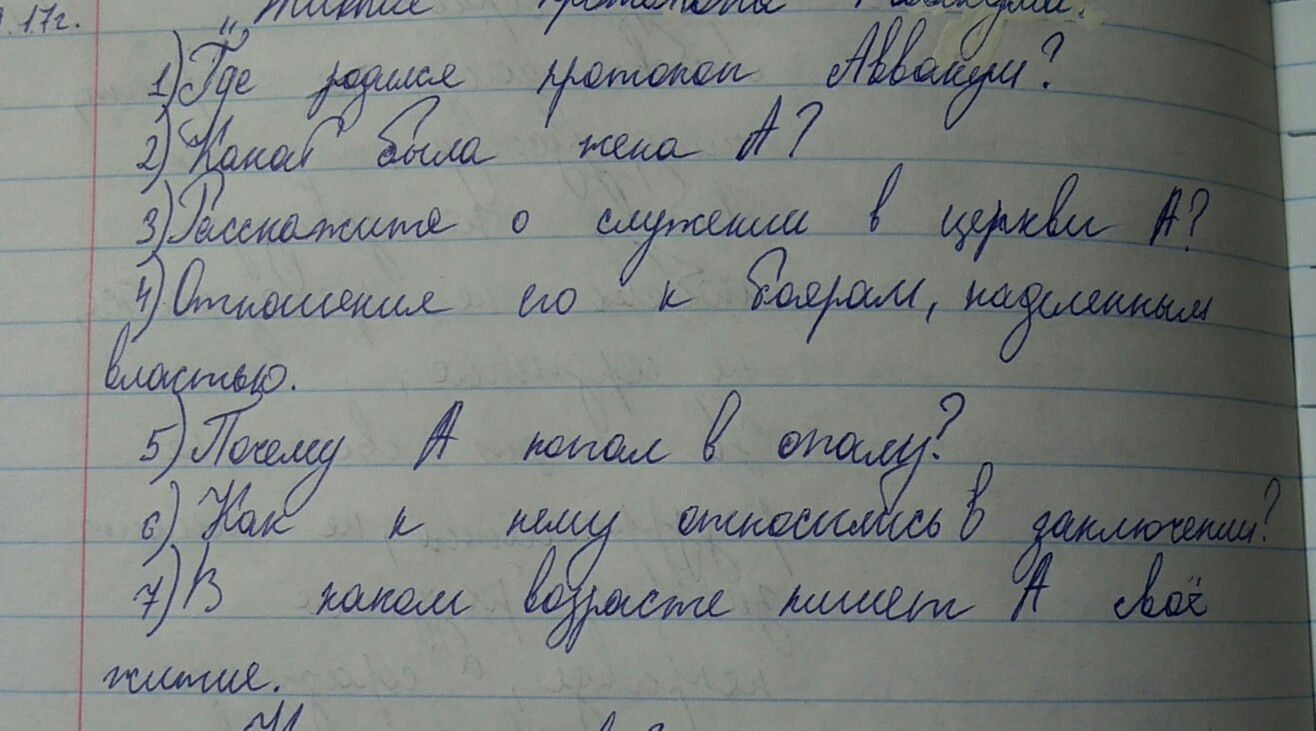 .17г. "Житие протопопа Аввакума.
1) Где родился протопоп Аввакум?
2) Какой была жена А?
3) Расскажите о служении в церкви А?
4) Отношения его к боярам, наделенным
властью.
5) Почему А попал в опалу?
6) Как к нему относились в заключении?
7) В каком возрасте пишет А своё
житие.